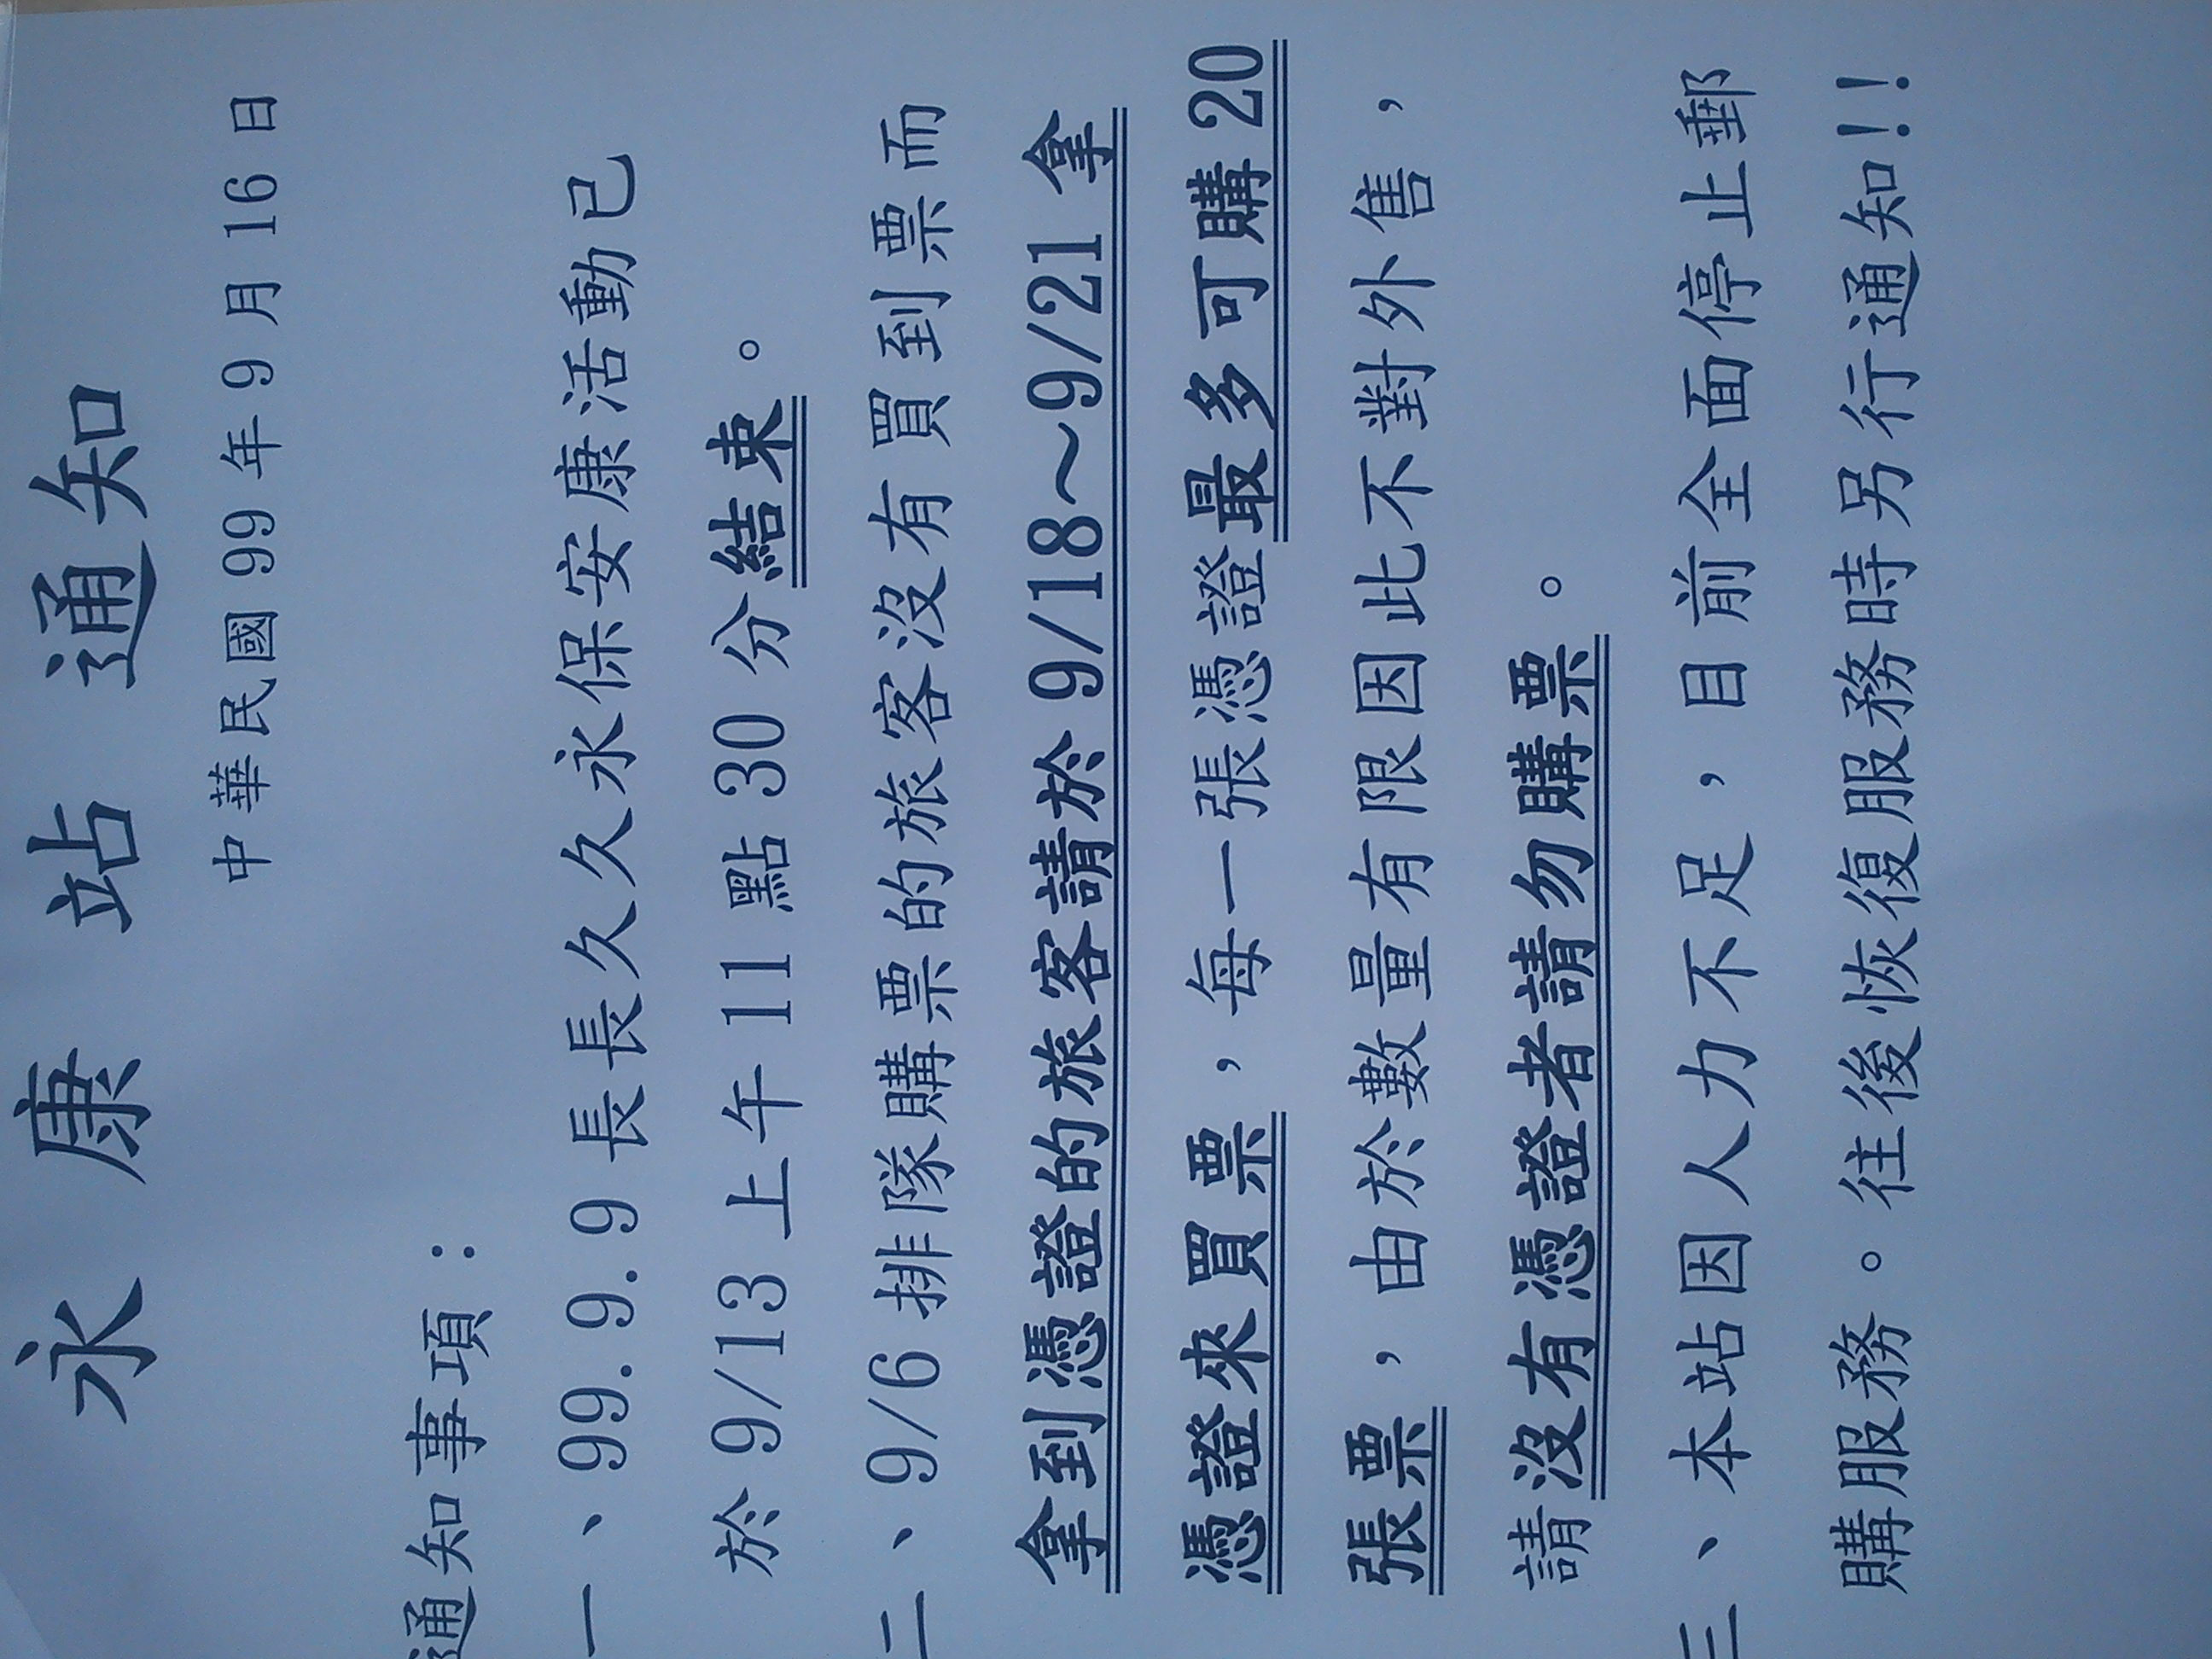 永康站通知
中華民國 99 年 9 月 16 日
通知事項：
一、99.9.9.9 長長久久永保安康活動已
於 9/13 上午 11 點 30 分結束。
二、9/6 排隊購票的旅客沒有買到票而
拿到憑證的旅客請於 9/18～9/21 拿
憑證來買票，每一張憑證最多可購 20
張票，由於數量有限因此不對外售，
請沒有憑證者請勿購票。
三、本站因人力不足，目前全面停止郵
購服務。往後恢復服務時另行通知!!